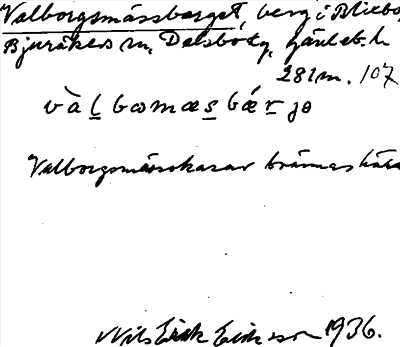 Valborgsmässberget, berg i Blixbo,
Bjuråkers sn, Delsbo tg, Gävleb. l.
281 m. 107
Valborgsmässokasar brännes här
Nils Erik Eriksson 1936.